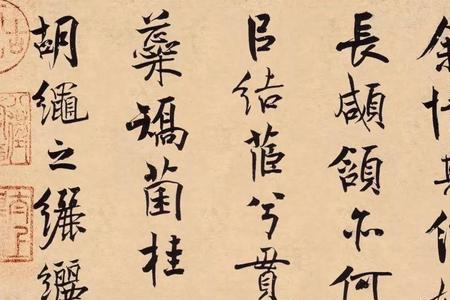 余情其信
長顑頷亦何
㠯結茝兮貫
蘂矯菌桂
胡繩之纚纚